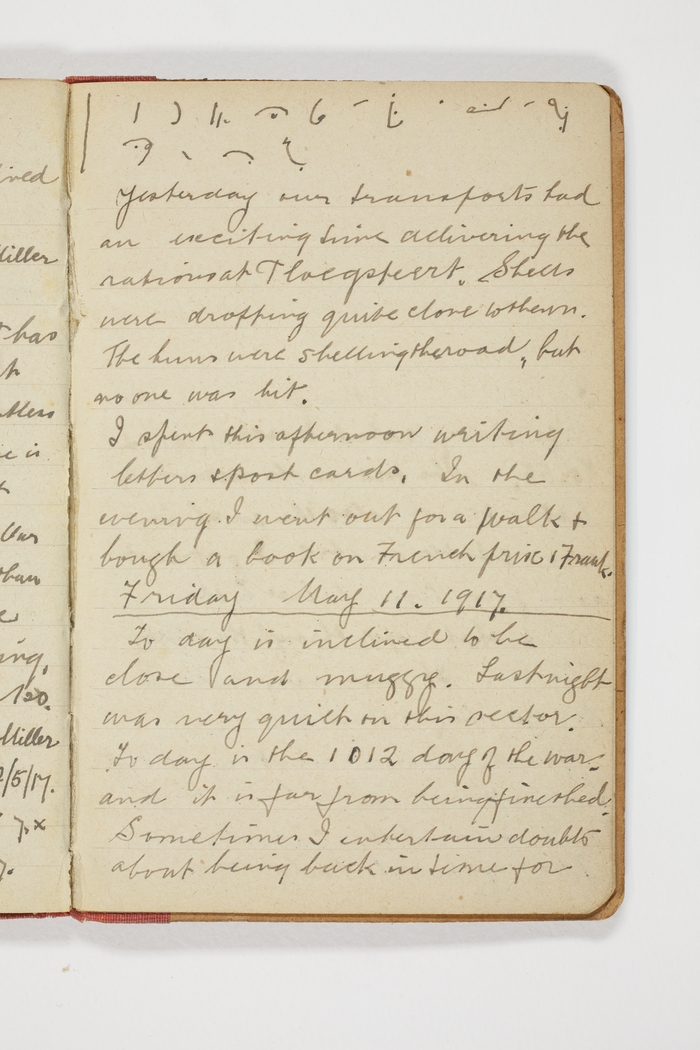 ived
Miller
has
is
than
ing,
120.
Miller
/5/17.
Yesterday our transports had
an exciting time delivering the
rations at Ploegsteert. Shells
were dropping quite close to them.
The huns were shelling the road, but
no one was hit.
I spent this afternoon writing
letters & post cards. In the
evening I went out for a walk &
bough a book on French price 1 Frank.
Friday May 11. 1917.
To day is inclined to be
close and muggy. Last night
was very quiet on this sector.
To day is the 1012 day of the war
and it is far from being fineshed.
Sometimes I entertain doubts
about being back in time for